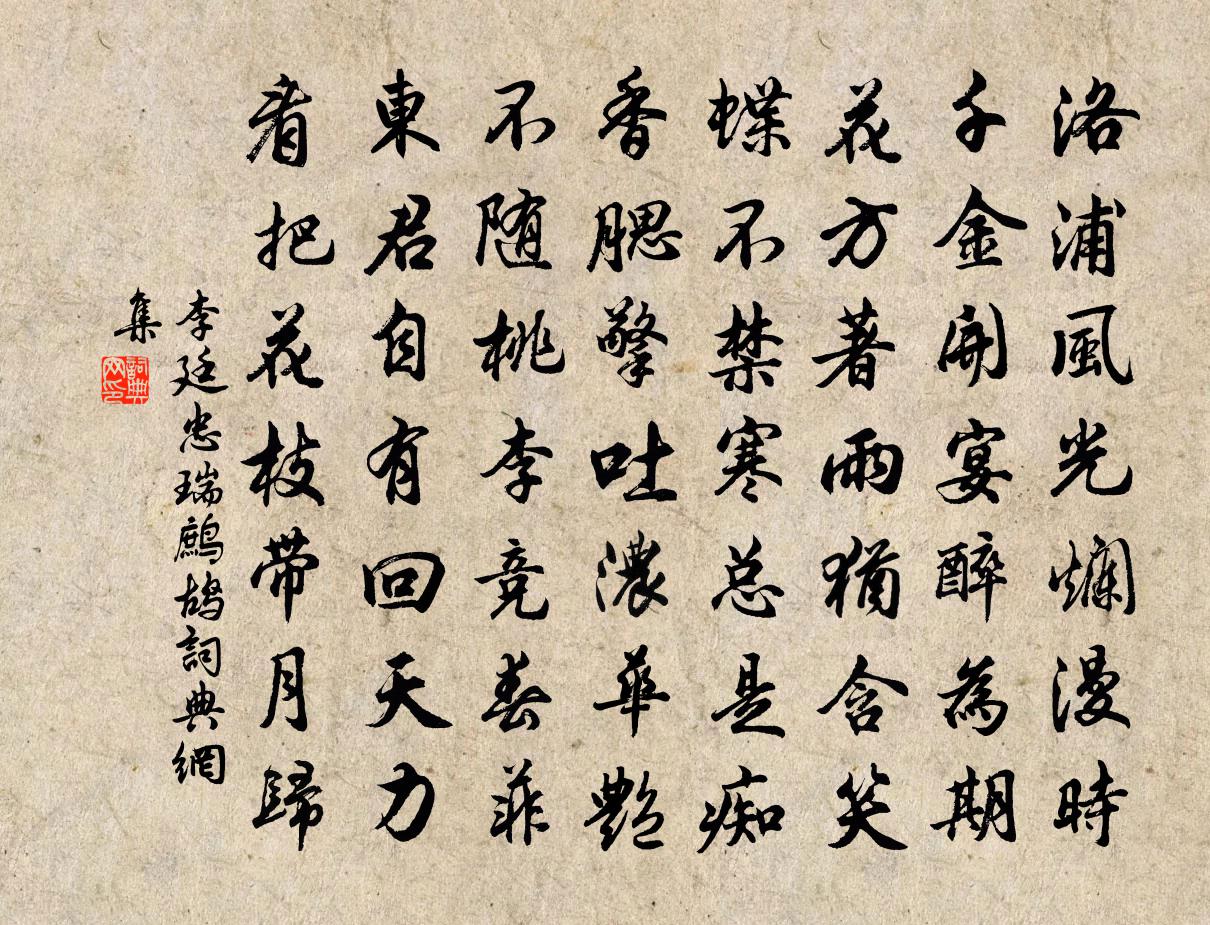 洛浦風光爛漫時
千金開宴醉為期
花方著雨猶含笑
蝶不禁寒总是痴
香腮擎吐濃華艷
不随桃李竞春菲
東君自有回天力
看把花枝帶月歸
李廷忠瑞鷓鴣詞典網
集
詞典網印